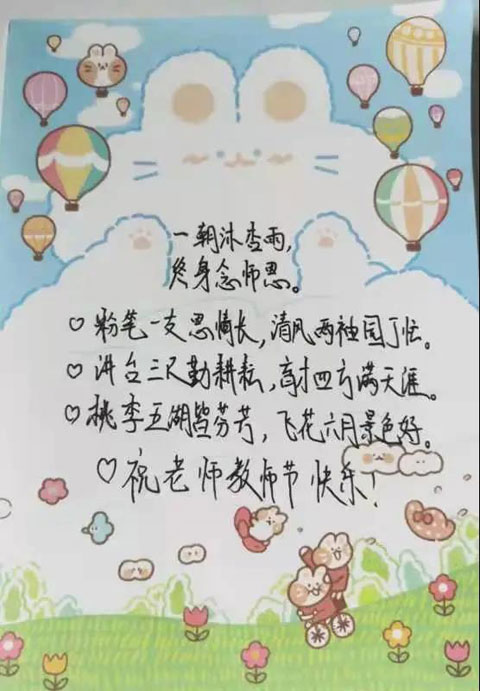 一朝沐杏雨，
终身念师恩。
♡粉笔一支思情长，清风两袖园丁忙。
♡讲台三尺勤耕耘，育才四方满天涯。
♡桃李五湖皆芬芳，飞花六月景色好。
♡祝老师教师节快乐！